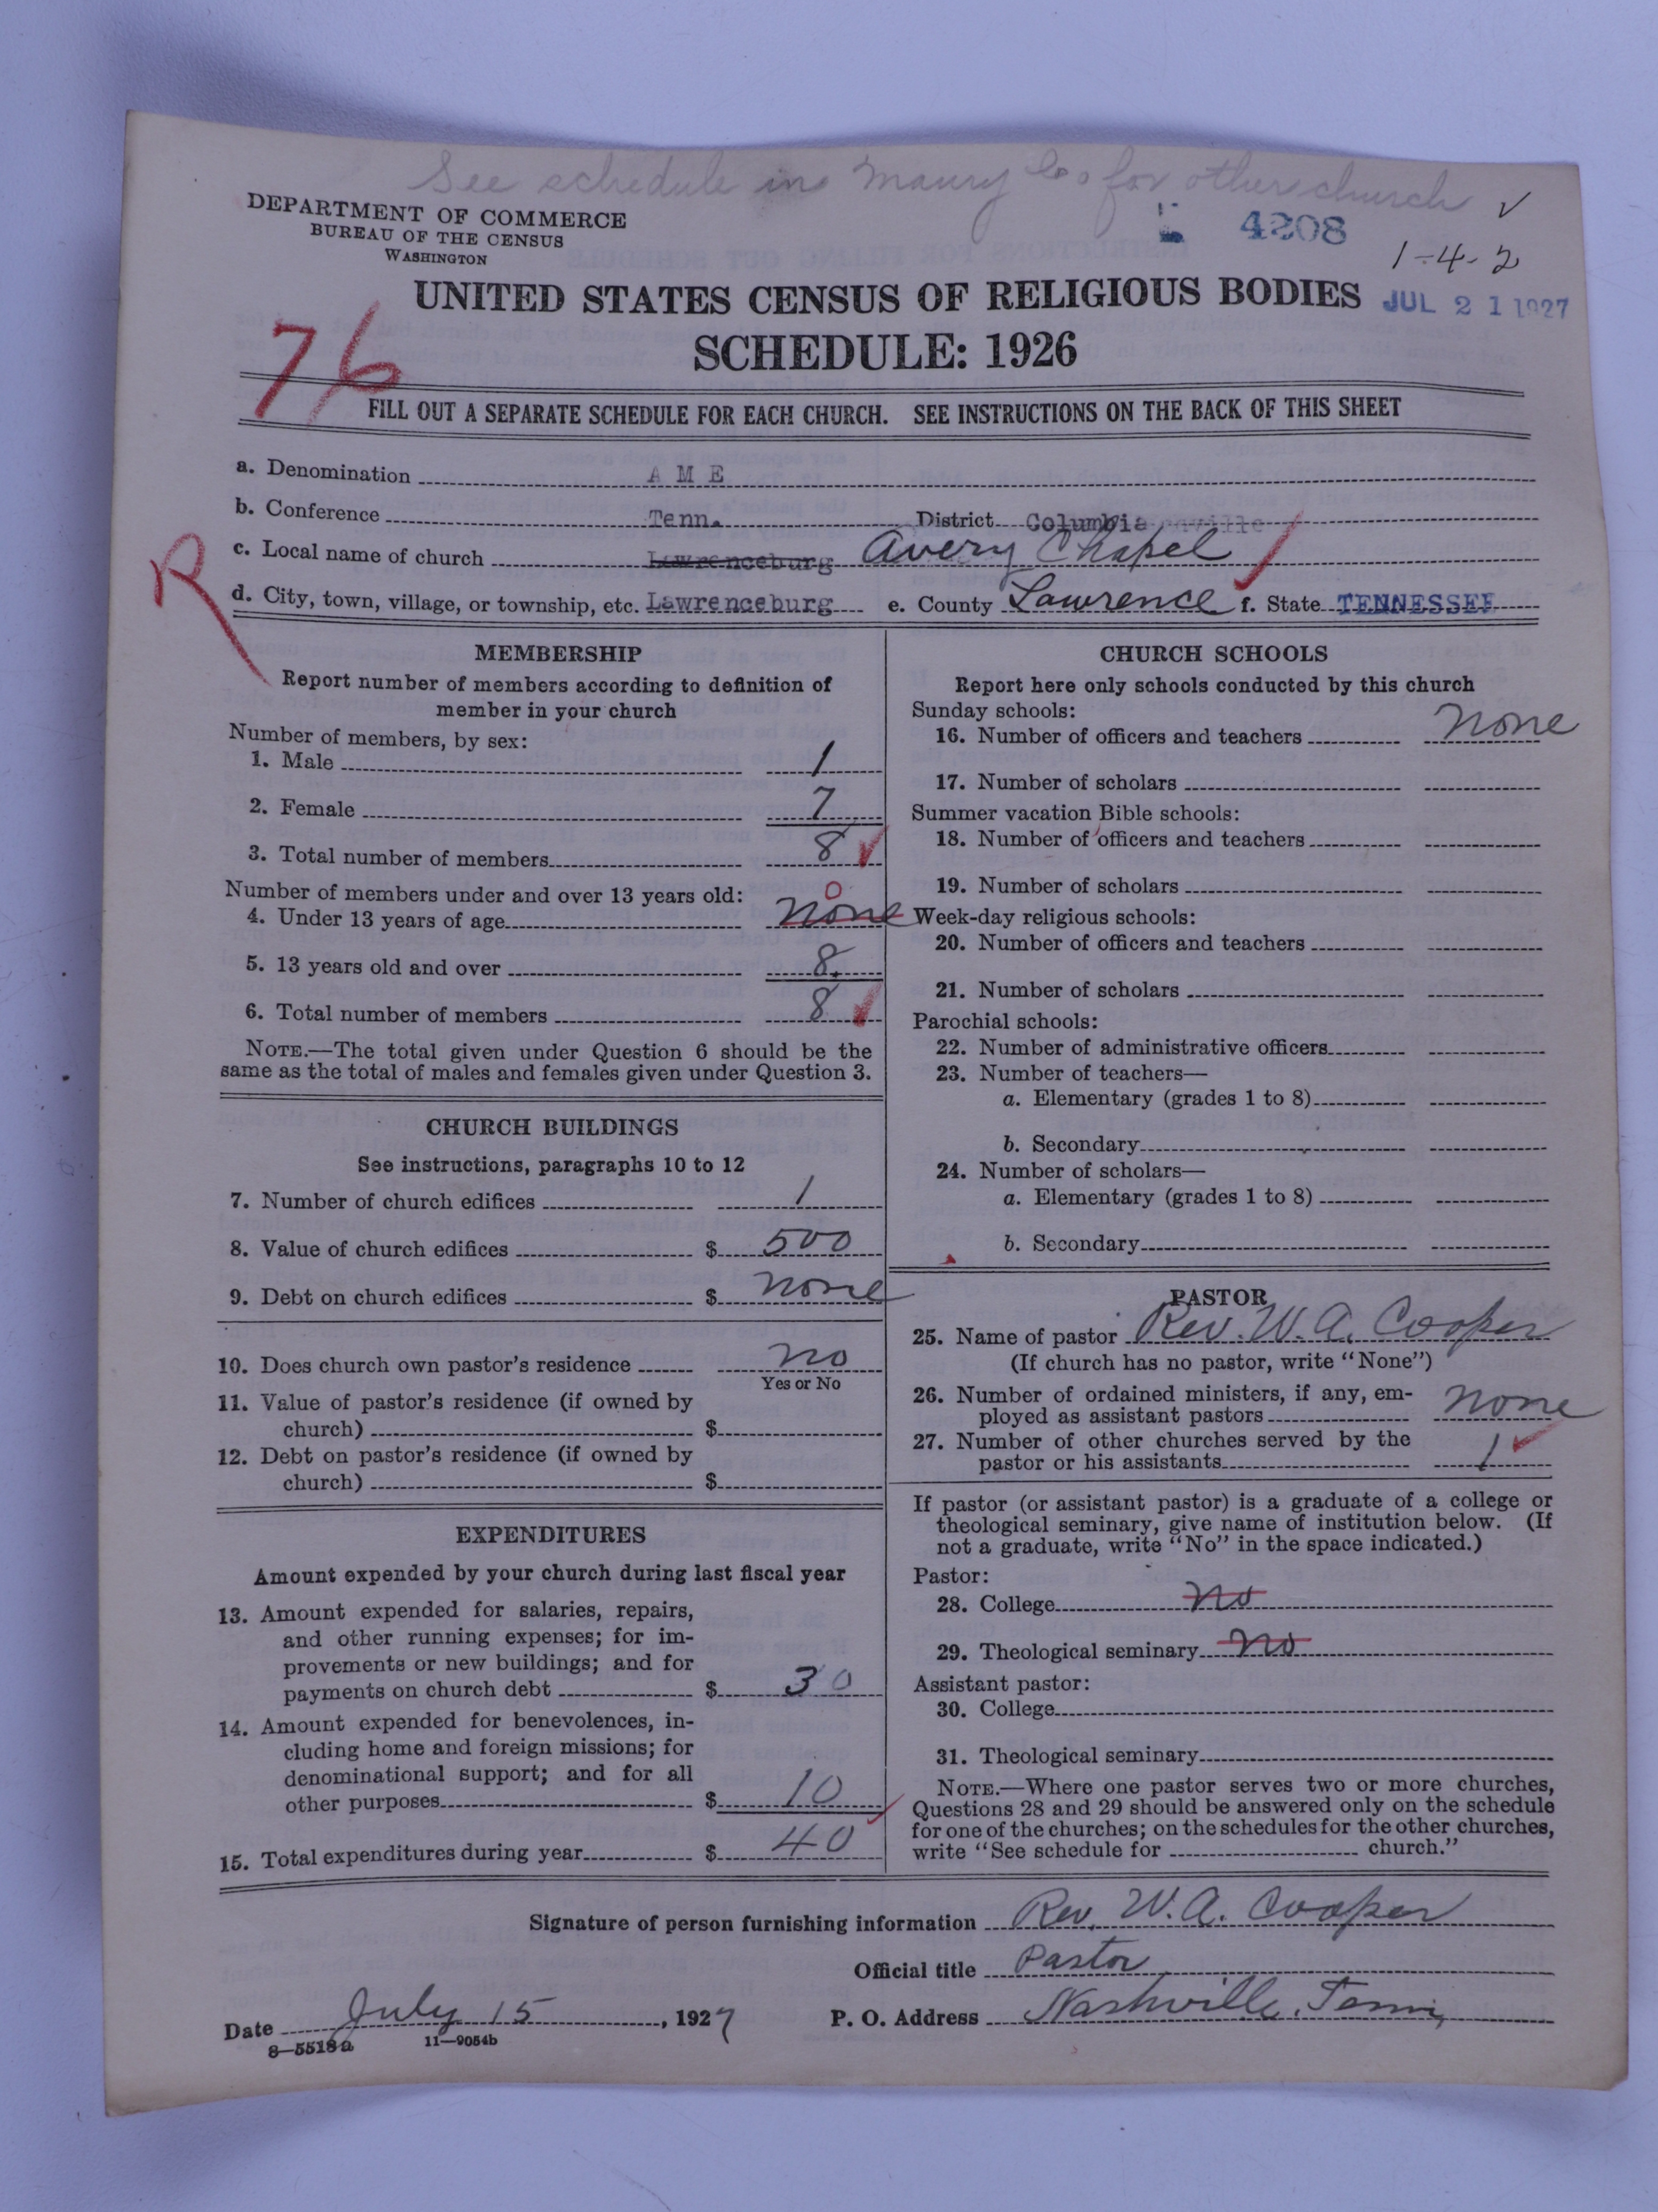 See schedule in Maury Co for other church ✓
DEPARTMENT OF COMMERCE
BUREAU OF THE CENSUS
WASHINGTON
4208
1-4-2
UNITED STATES CENSUS OF RELIGIOUS BODIES
JUL 21 1927
SCHEDULE: 1926
76
FILL OUT A SEPARATE SCHEDULE FOR EACH CHURCH. SEE INSTRUCTIONS ON THE BACK OF THIS SHEET
a. Denomination A M E
b. Conference Tenn. District Columbia
c. Local name of church Lawrenceburg Avery Chapel
R
d. City, town, village, or township, etc. Lawrenceburg e. County Lawrence f. State TENNESSEE
MEMBERSHIP
Report number of members according to definition of
member in your church
Number of members, by sex:
1. Male 1
2. Female 7
3. Total number of members 8
Number of members under and over 13 years old:
0
4. Under 13 years of age none
5. 13 years old and over 8
6. Total number of members 8
NOTE.—The total given under Question 6 should be the
same as the total of males and females given under Question 3.
CHURCH BUILDINGS
See instructions, paragraphs 10 to 12
7. Number of church edifices 1
8. Value of church edifices $ 500
9. Debt on church edifices $ none
10. Does church own pastor's residence no
Yes or No
11. Value of pastor's residence (if owned by
church) $
12. Debt on pastor's residence (if owned by
church) $
EXPENDITURES
Amount expended by your church during last fiscal year
13. Amount expended for salaries, repairs,
and other running expenses; for im-
provements or new buildings; and for
payments on church debt $ 30
14. Amount expended for benevolences, in-
cluding home and foreign missions; for
denominational support; and for all
other purposes $ 10
15. Total expenditures during year $ 40
CHURCH SCHOOLS
Report here only schools conducted by this church
Sunday schools:
16. Number of officers and teachers none
17. Number of scholars
Summer vacation Bible schools:
18. Number of officers and teachers
19. Number of scholars
Week-day religious schools:
20. Number of officers and teachers
21. Number of scholars
Parochial schools:
22. Number of administrative officers
23. Number of teachers—
a. Elementary (grades 1 to 8)
b. Secondary
24. Number of scholars—
a. Elementary (grades 1 to 8)
b. Secondary
PASTOR
25. Name of pastor Rev. W. A. Cooper
(If church has no pastor, write "None")
26. Number of ordained ministers, if any, em-
ployed as assistant pastors none
27. Number of other churches served by the
pastor or his assistants 1
If pastor (or assistant pastor) is a graduate of a college or
theological seminary, give name of institution below. (If
not a graduate, write "No" in the space indicated.)
Pastor:
28. College no
29. Theological seminary no
Assistant pastor:
30. College
31. Theological seminary
NOTE.—Where one pastor serves two or more churches,
Questions 28 and 29 should be answered only on the schedule
for one of the churches; on the schedules for the other churches,
write "See schedule for church."
Signature of person furnishing information Rev. W. A. Cooper
Official title Pastor
Date July 15, 1927 P. O. Address Nashville, Tenn,
8—5518a 11—9054b